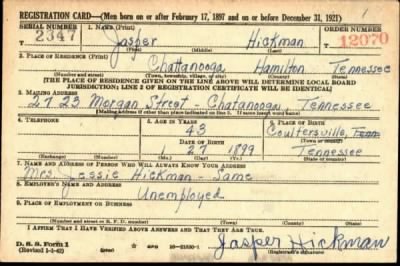 REGISTRATION CARD—(Men born on or after February 17, 1897 and on or before December 31, 1921)
SERIAL NUMBER 1. NAME (Print) ORDER NUMBER
T 2347 Jasper Hickman T 12070
(First) (Middle) (Last)
2. PLACE OF RESIDENCE (Print)
Chattanooga Hamilton Tennessee
(Number and street) (Town, township, village, or city) (County) (State)
[THE PLACE OF RESIDENCE GIVEN ON THE LINE ABOVE WILL DETERMINE LOCAL BOARD
JURISDICTION; LINE 2 OF REGISTRATION CERTIFICATE WILL BE IDENTICAL]
3. MAILING ADDRESS
2723 Morgan Street - Chatanooga, Tennessee
[Mailing address if other than place indicated on line 2. If same insert word same]
4. TELEPHONE 5. AGE IN YEARS 6. PLACE OF BIRTH
43 Coultersville, Tenn
DATE OF BIRTH (Town or county)
1 27 1899 Tennessee
(Exchange) (Number) (Mo.) (Day) (Yr.) (State or country)
7. NAME AND ADDRESS OF PERSON WHO WILL ALWAYS KNOW YOUR ADDRESS
Mrs. Jessie Hickman - Same
8. EMPLOYER'S NAME AND ADDRESS
Unemployed
9. PLACE OF EMPLOYMENT OR BUSINESS
(Number and street or R. F. D. number) (Town) (County) (State)
I AFFIRM THAT I HAVE VERIFIED ABOVE ANSWERS AND THAT THEY ARE TRUE.
D. S. S. Form 1
(Revised 4-1-42) GPO 16-21630-1 Jasper Hickman